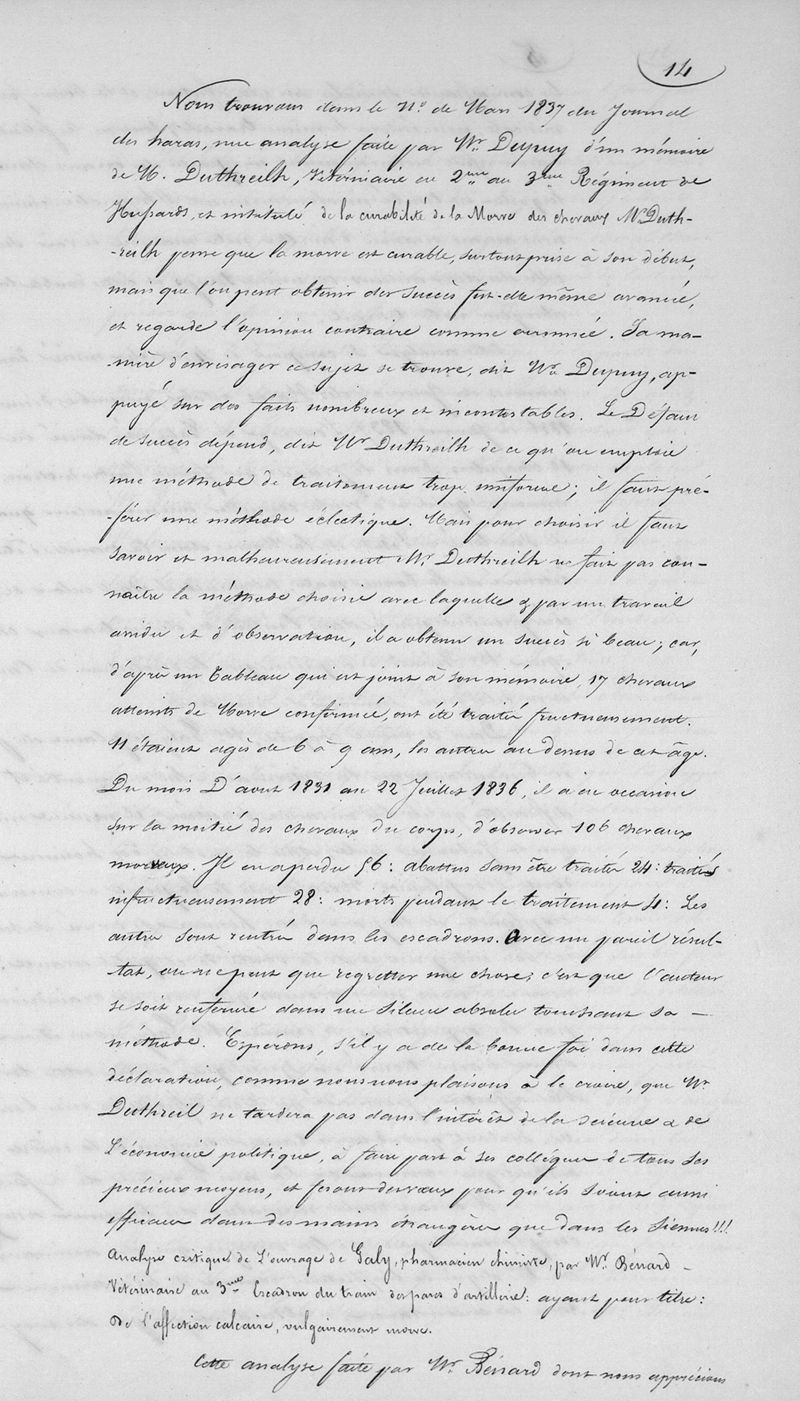 14
Nous trouvons dans le N.º de Mars 1837 du Journal
des haras, une analyse faite par Mr. Dupuy d'un mémoire
de M. Duthreilh, Vétérinaire en 2me au 3me Régiment de
Hussards, et intitulé de la curabilité de la Morve des chevaux Mr Duth-
-reilh pense que la morve est curable, surtout prise à son début,
mais que l'on peut obtenir des succès fut-elle même avancée,
et regarde l'opinion contraire comme erronnée. Sa ma-
nière d'envisager ce sujet se trouve, dit Mr. Dupuy, ap-
puyé sur des faits nombreux et incontestables. Le Défaut
de succès dépend, dit Mr Duthreilh de ce qu'on emploie
une méthode de traitement trop uniforme; il faut pré-
-férer une méthode éclectique. Mais pour choisir il faut
savoir et malheureusement Mr. Duthreilh ne fait pas con-
naître la méthode choisie avec laquelle & par un travail
aride et d'observation, il a obtenu un succès si beau; car,
d'après un Tableau qui est joint à son mémoire, 17 chevaux
atteints de Morve confirmée, ont été traités fructueusement.
11 étaient agés de 6 à 9 ans, les autres au dessus de cet âge.
Du mois D'aout 1831 au 22 Juillet 1836, il a eu occasion
sur la moitié des chevaux du corps, d'observer 106 chevaux
morveux. Il en a perdu 56: abattus sans être traités 24: traités
infructueusement 28: morts pendant le traitement 4: Les
autres sont rentrés dans les escadrons. Avec un pareil résul-
tat, on ne peut que regretter une chose, c'est que l'auteur
se soit renfermé dans un silence absolu touchant sa -
méthode. Espérons, s'il y a de la bonne foi dans cette
déclaration, comme nous nous plaisons à le croire, que Mr
Duthreil ne tardera pas dans l'intérêt de la science & de
L'économie politique, à faire part à ses collégues de tous ses
précieux moyens, et fesons des vœux pour qu'ils soient aussi
efficaces dans des mains étrangères que dans les siennes!!!
Analyse critique de L'ouvrage de Galy, pharmacien chimiste, par Mr. Bénard -
Vétérinaire au 3me Escadron du train des parcs d'artillerie: ayant pour titre:
De l'affection calcaire, vulgairement morve.
Cette analyse faite par Mr. Bénard dont nous apprécions